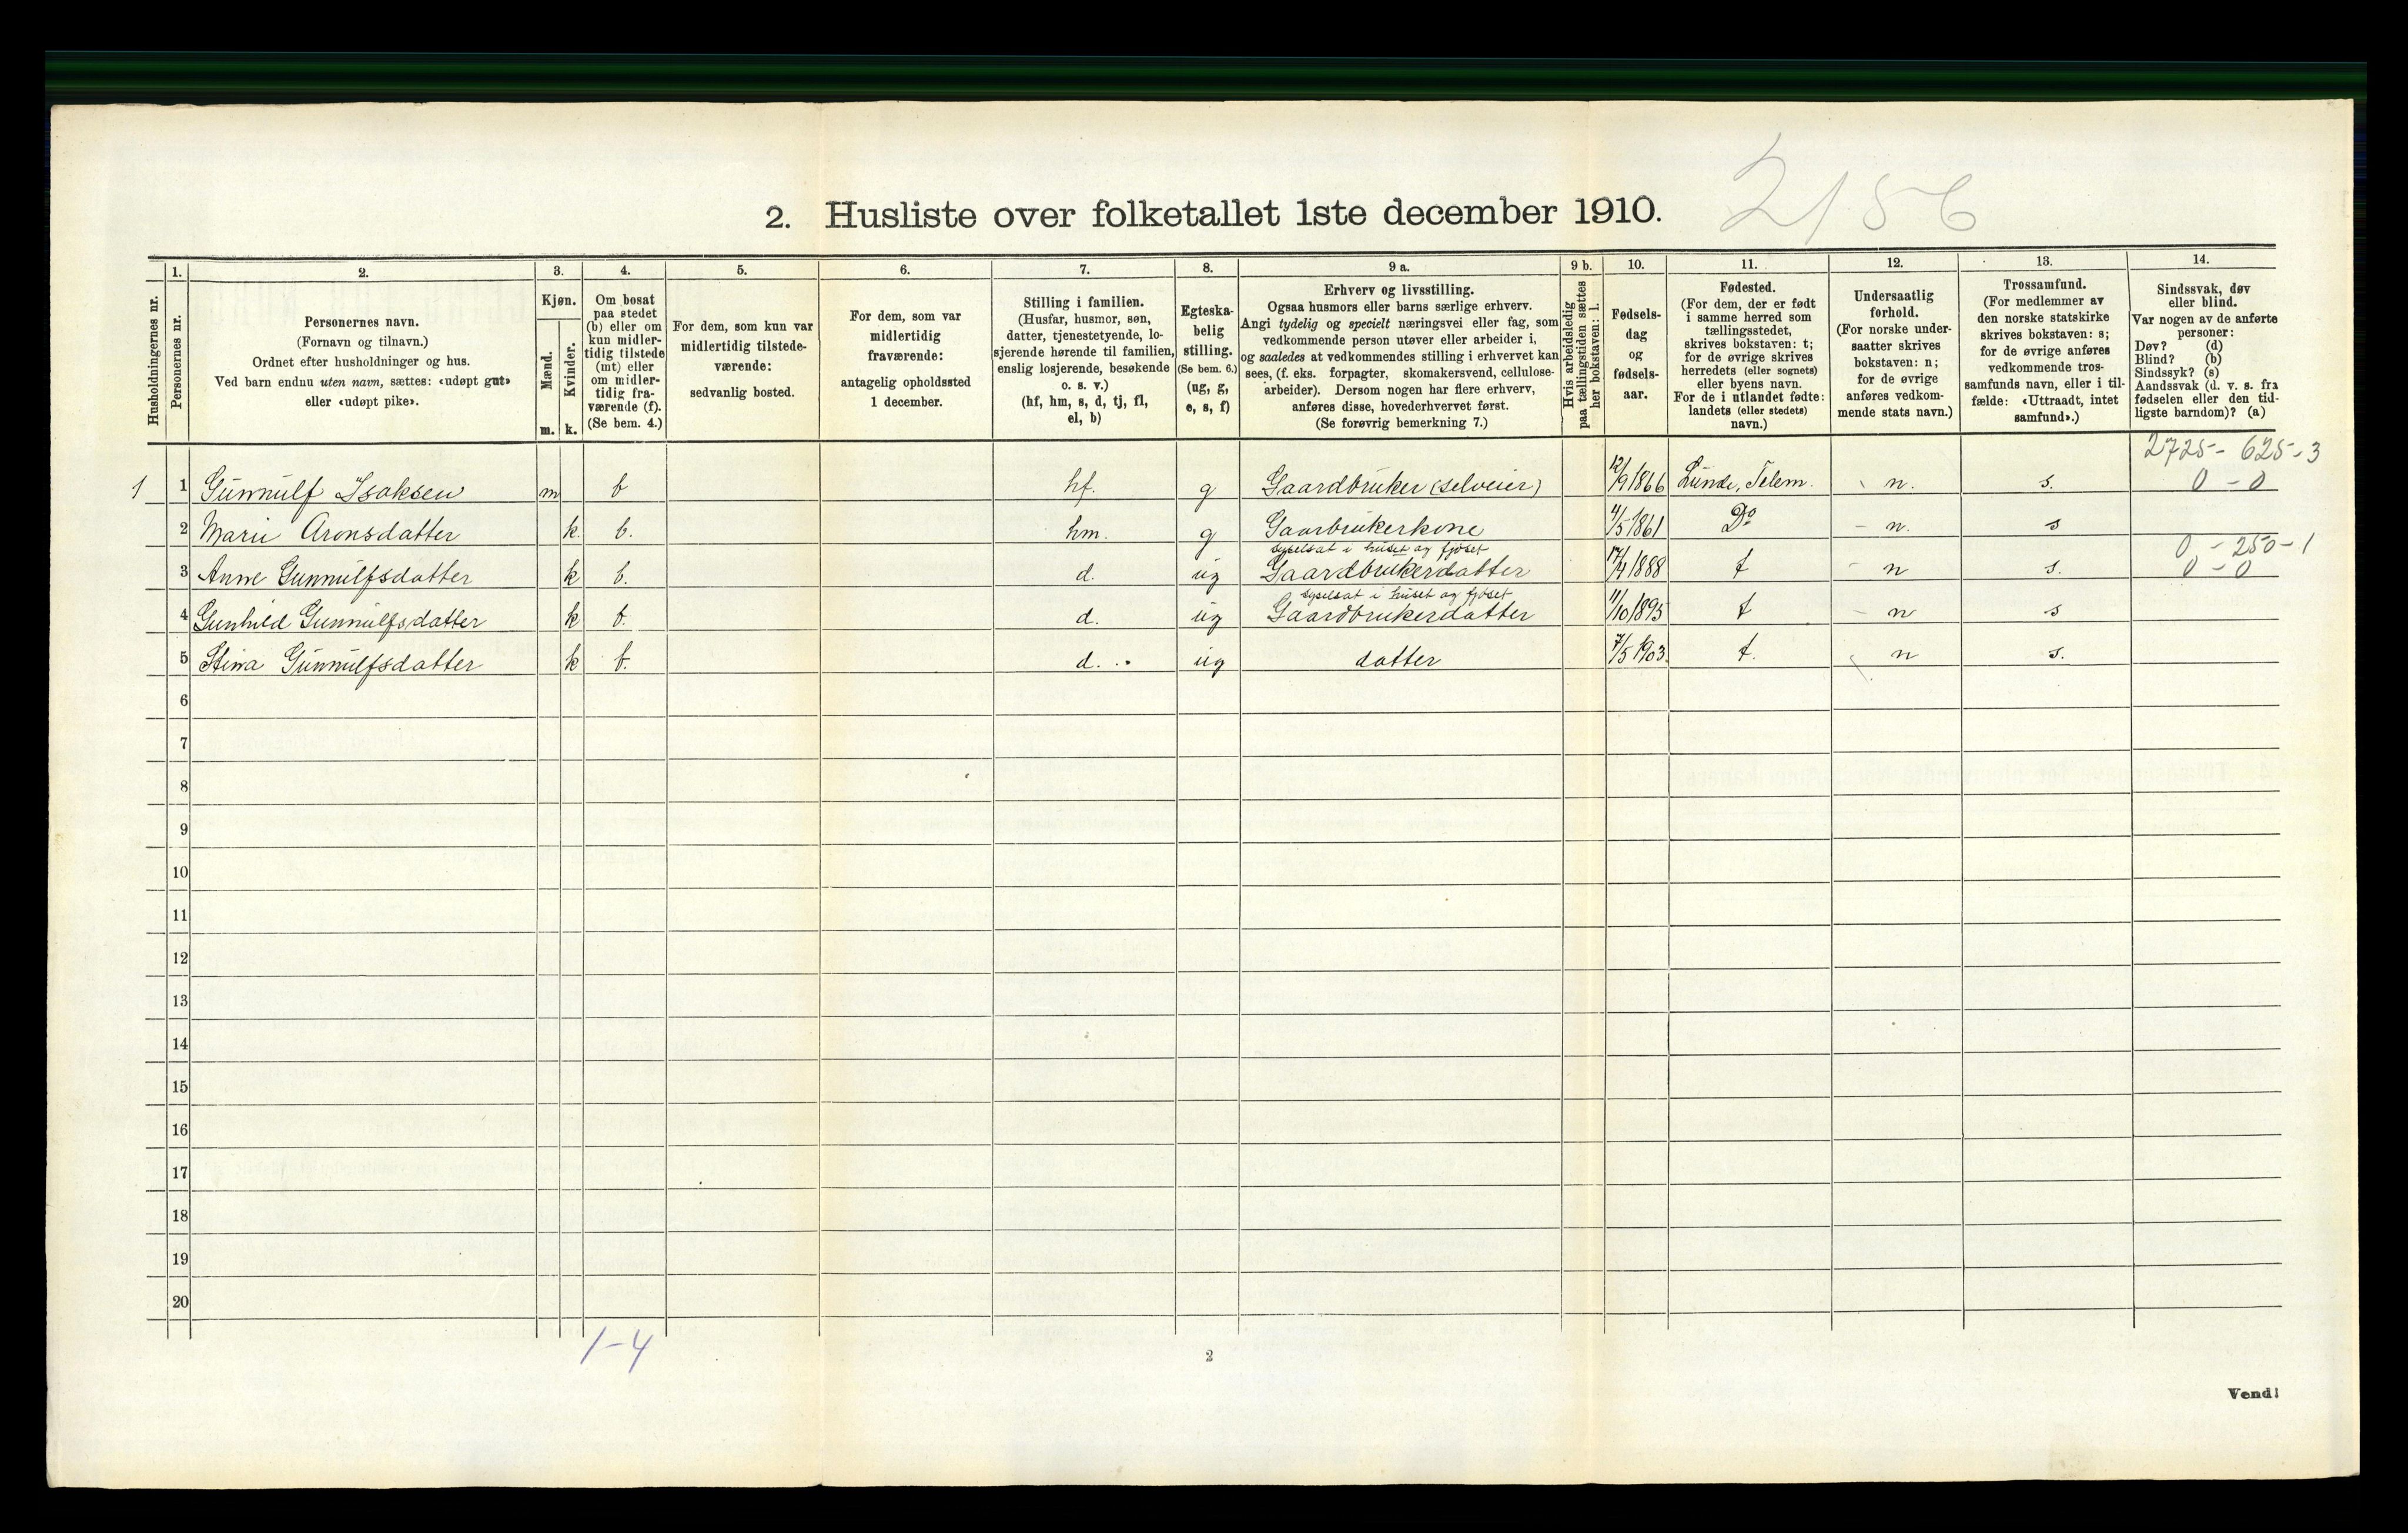 2156
2. Husliste over folketallet 1ste december 1910.
Husholdningernes nr.
1. Personernes nr.
2. Personernes navn.
(Fornavn og tilnavn.)
Ordnet efter husholdninger og hus.
Ved barn endnu uten navn, sættes: «udøpt gut»
eller «udøpt pike».
3. Kjøn.
Mænd. m.
Kvinder. k.
4. Om bosat
paa stedet
(b) eller om
kun midler-
tidig tilstede
(mt) eller
om midler-
tidig fra-
værende (f).
(Se bem. 4.)
5. For dem, som kun var
midlertidig tilstede-
værende:
sedvanlig bosted.
6. For dem, som var
midlertidig
fraværende:
antagelig opholdssted
1 december.
7. Stilling i familien.
(Husfar, husmor, søn,
datter, tjenestetyende, lo-
sjerende hørende til familien,
enslig losjerende, besøkende
o. s. v.)
(hf, hm, s, d, tj, fl,
el, b)
8. Egteska-
belig
stilling.
(Se bem. 6.)
(ug, g,
e, s, f)
9 a. Erhverv og livsstilling.
Ogsaa husmors eller barns særlige erhverv.
Angi tydelig og specielt næringsvei eller fag, som
vedkommende person utøver eller arbeider i,
og saaledes at vedkommendes stilling i erhvervet kan
sees, (f. eks. forpagter, skomakersvend, cellulose-
arbeider). Dersom nogen har flere erhverv,
anføres disse, hovederhvervet først.
(Se forøvrig bemerkning 7.)
9 b. Hvis arbeidsledig
paa tællingstiden sættes
her bokstaven: l.
10. Fødsels-
dag
og
fødsels-
aar.
11. Fødested.
(For dem, der er født
i samme herred som
tællingsstedet,
skrives bokstaven: t;
for de øvrige skrives
herredets (eller sognets)
eller byens navn.
For de i utlandet fødte:
landets (eller stedets)
navn.)
12. Undersaatlig
forhold.
(For norske under-
saatter skrives
bokstaven: n;
for de øvrige
anføres vedkom-
mende stats navn.)
13. Trossamfund.
(For medlemmer av
den norske statskirke
skrives bokstaven: s;
for de øvrige anføres
vedkommende tros-
samfunds navn, eller i til-
fælde: «Uttraadt, intet
samfund».)
14. Sindssvak, døv
eller blind.
Var nogen av de anførte
personer:
Døv? (d)
Blind? (b)
Sindssyk? (s)
Aandssvak (d. v. s. fra
fødselen eller den tid-
ligste barndom)? (a)
2725 - 625 - 3
1 1 Gunnulf Isaksen m b hf. g Gaardbruker (selveier) 12/9 1866 Lunde, Telem. n. s. 0 - 0
2 Marie Aronsdatter k. b. hm. g Gaarbrukerkone 4/5 1861 Do n. s
sysselsat i huset og fjøset 0 - 250 - 1
3 Anne Gunnulfsdatter k b. d. ug Gaardbrukerdatter 1888 t n s. 0 - 0
sysselsat i huset og fjøset
4 Gunhild Gunnulfsdatter k b. d. ug Gaardbrukerdatter 11/10 1895 t n s
5 Stina Gunnulfsdatter k b. d. ug datter 7/5 1903. t. n s.
6
7
8
9
10
11
12
13
14
15
16
17
18
19
20
1-4
2
Vend!